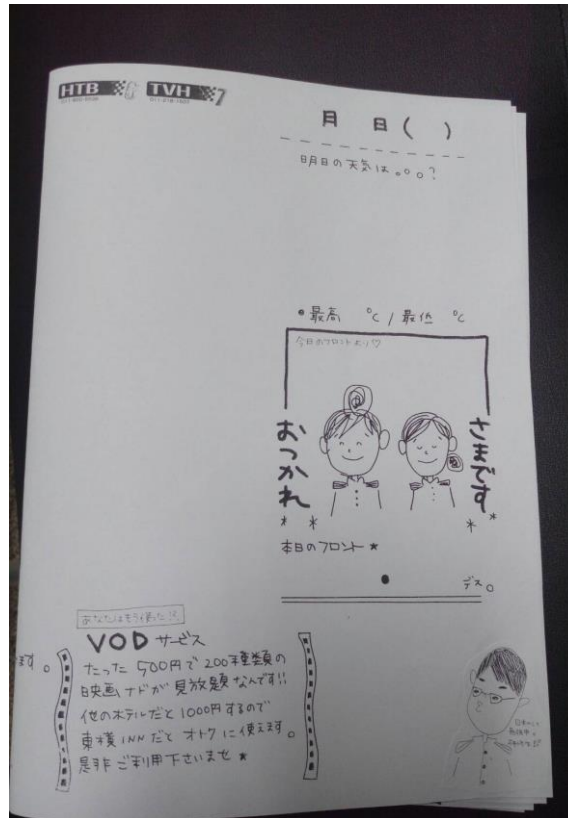 HTB 6 TVH 7
月 日( )
明日の天気は。。。?
•最高 ℃ / 最低 ℃
今日のフロントより♡
おつかれ
さまです
本日のフロント★
• デス。
あなたはもう使った!?
VODサービス
ます。
たった500円で200種類の
映画ナドが見放題なんです!!
他のホテルだと1000円するので
東横INNだとオトクに使えます。
是非ご利用下さいませ★